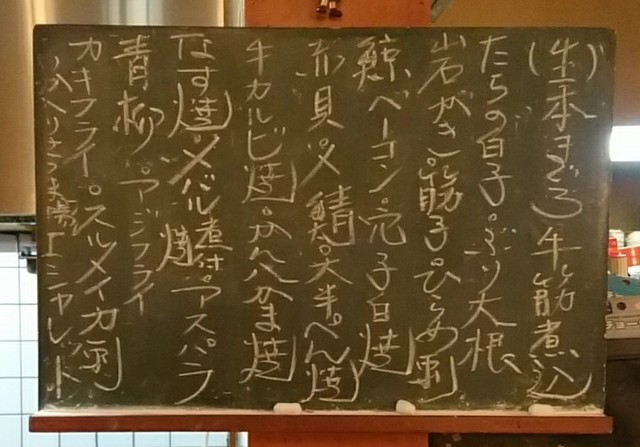 (生)本まぐろ 牛筋煮込
たらの白子。ぶり大根
岩がき。筋子。ひらめ刺
鯨ベーコン。穴子白焼
赤貝。〆鯖。大半ぺん焼
牛カルビ焼。かんパかま焼
なす焼。メバル煮付。アスパラ焼
青柳。アジフライ
カキフライ。スルメイカ刺
入りさつま揚